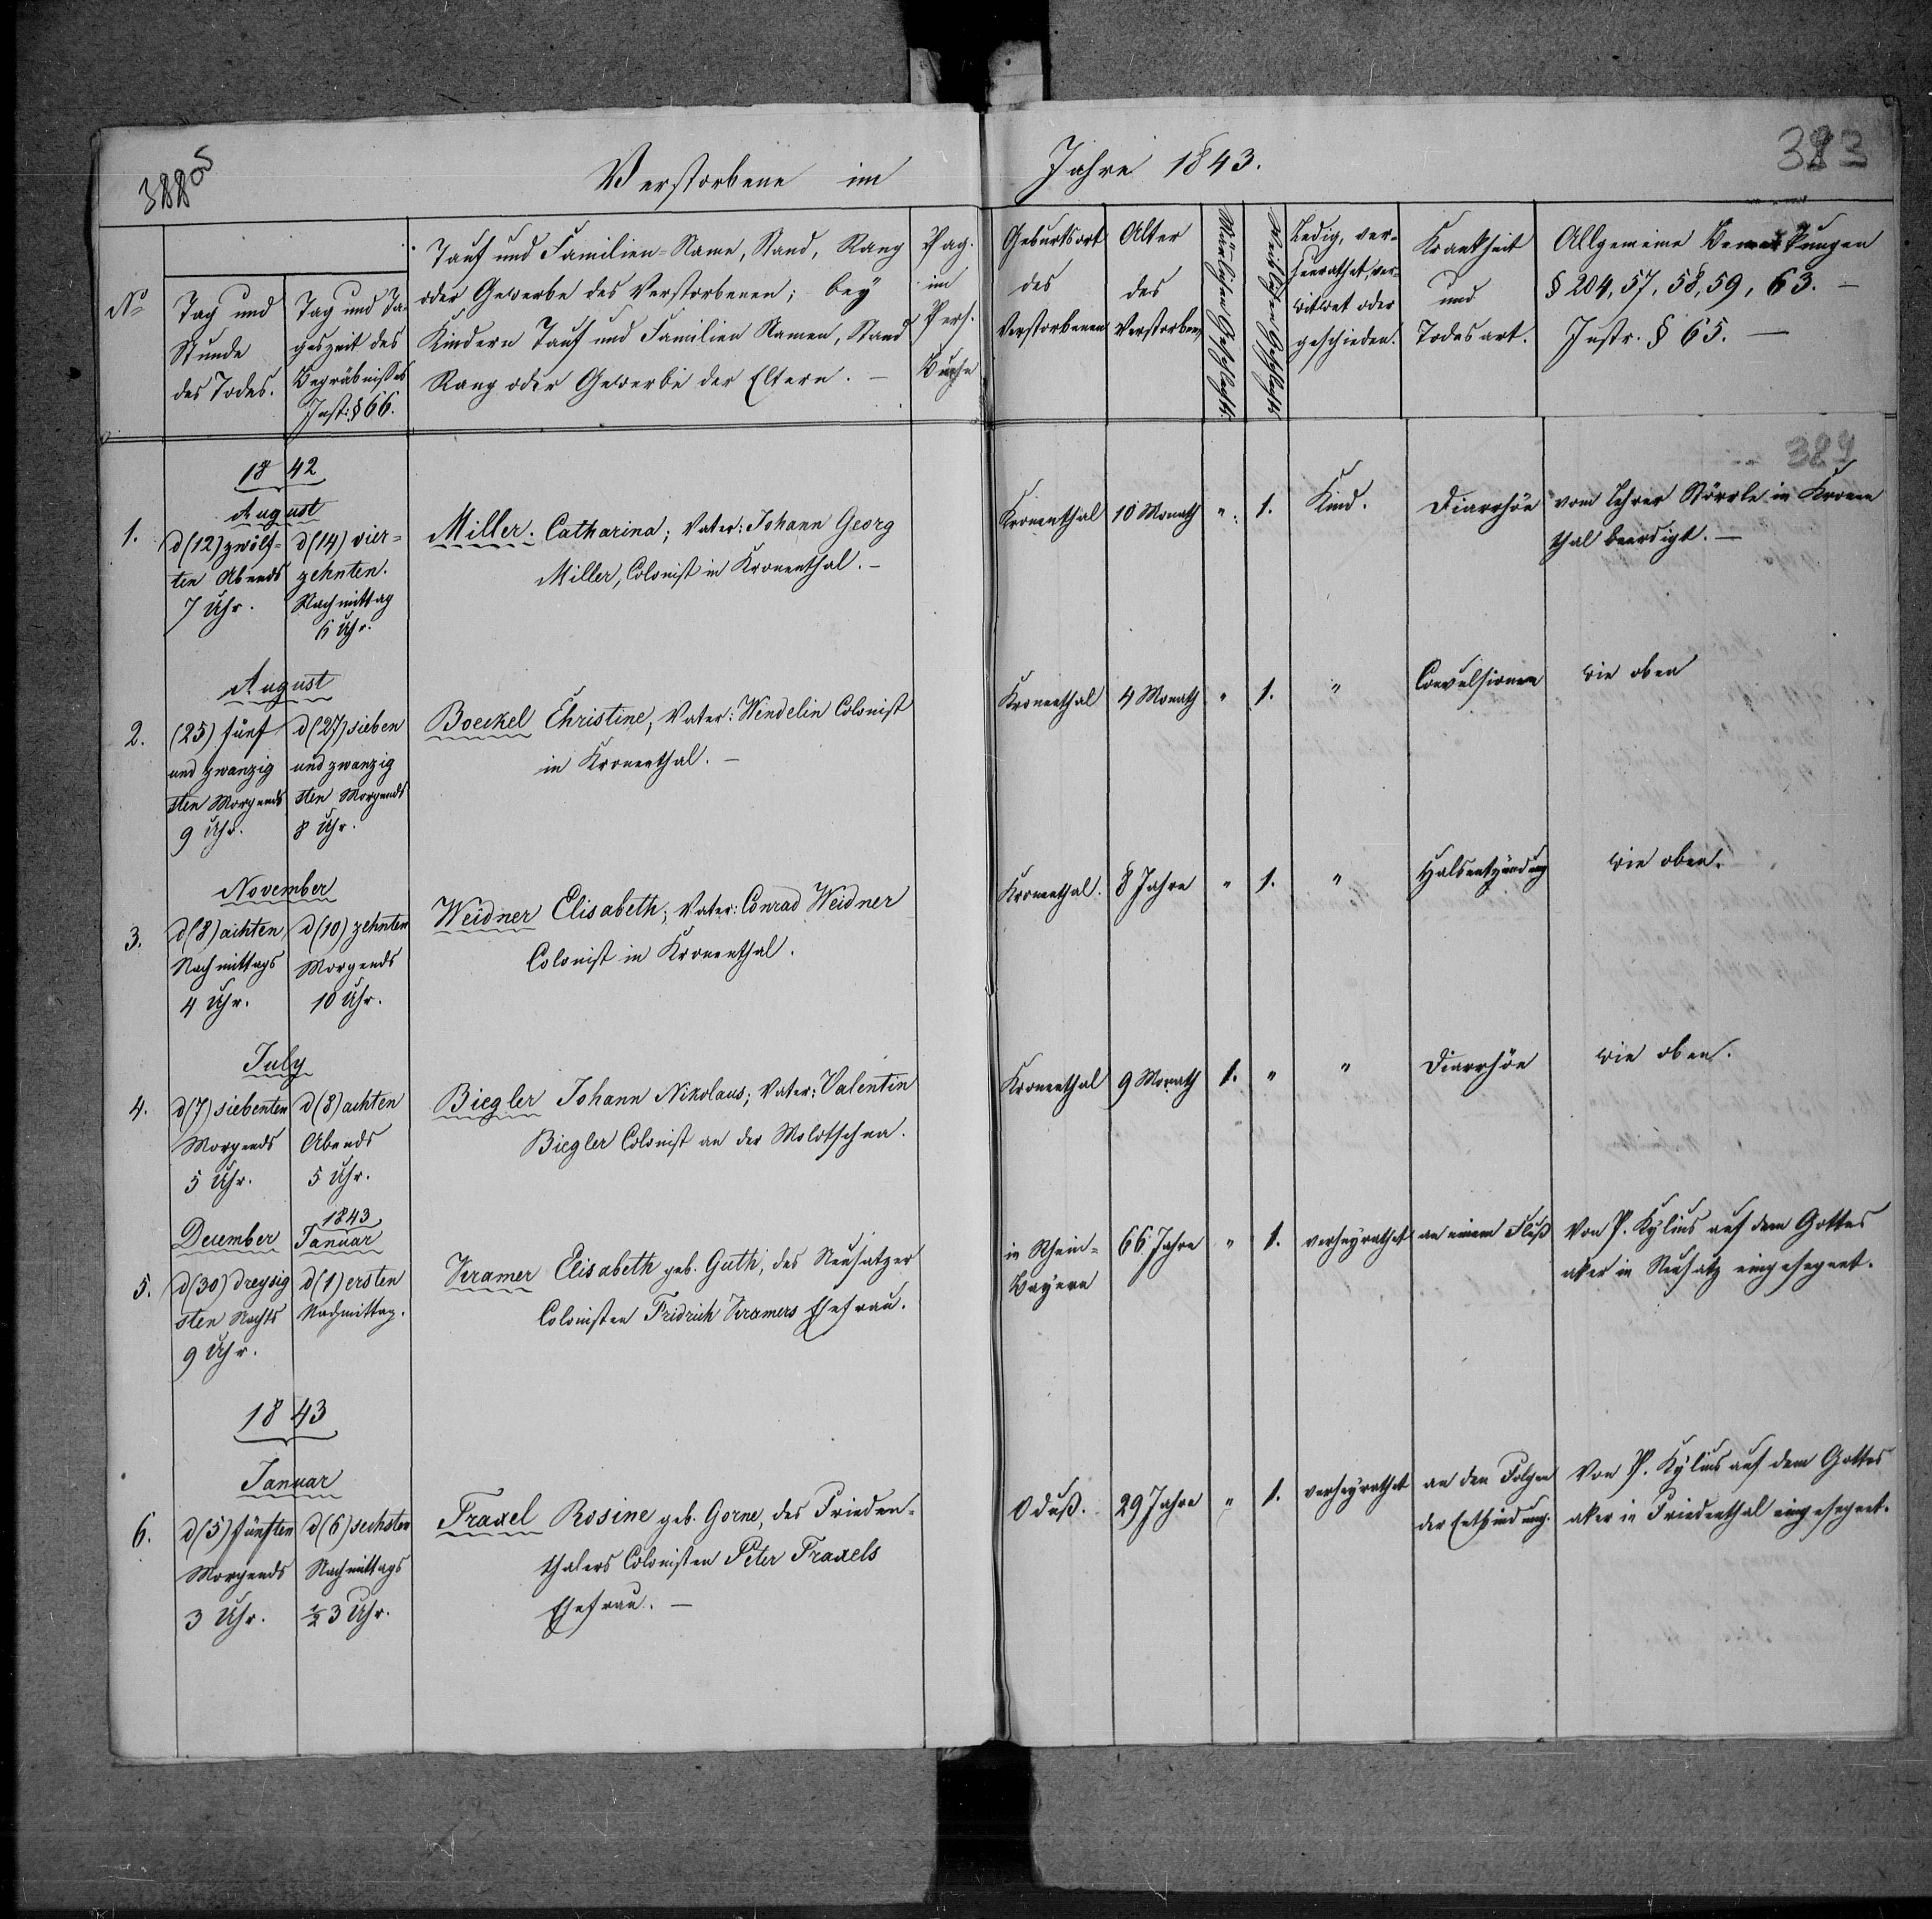 388
Verstorbene im Jahre 1843.
383
No
Tag und
Stunde
des Todes.
Tag und Ta-
geszeit des
Begräbnißes
Inst: § 66.
Tauf und Familien-Name, Stand, Rang
oder Gewerbe des Verstorbenen; bey
Kindern Tauf und Familien Namen, Stand
Rang oder Gewerbe der Eltern. —
Pag.
im
Pers.
Buche
Geburtsort
des
Verstorbenen
Alter
des
Verstorbenen
Männlichen Geschlechts.
Weiblichen Geschlechts.
Ledig, ver-
heurathet, ver-
witwet oder
geschieden.
Krankheit
und
Todesart.
Allgemeine Bemerkungen
§ 204, 57, 58, 59, 63. —
Instr. § 65. —
389
1842
August
1.
d (12) zwölf-
ten Abends
7 Uhr.
d (14) vier-
zehnten.
Nachmittag
6 Uhr.
Miller. Catharina; Vater: Johann Georg
Miller, Colonist in Kronenthal. —
Kronenthal
10 Monath
"
1.
Kind.
Diarrhöe
vom Lehrer Störrle in Kronen
thal beerdigt. —
August
2.
(25) fünf
und zwanzig
sten Morgends
9 Uhr.
d (27) sieben
und zwanzig
sten Morgends
8 Uhr.
Boeckel Christine, Vater: Wendelin Colonist
in Kronenthal. —
Kronenthal
4 Monath
"
1.
"
Convulsionen
wie oben
November
3.
d (8) achten
Nachmittags
4 Uhr.
d (10) zehnten
Morgends
10 Uhr.
Weidner Elisabeth; Vater: Conrad Weidner
Colonist in Kronenthal.
Kronenthal.
8 Jahre
"
1.
"
Halsentzündung
wie oben.
July
4.
d (7) siebenten
Morgends
5 Uhr.
d (8) achten
Abends
5 Uhr.
Biegler Johann Nikolaus; Vater: Valentin
Biegler Colonist an der Molotschna.
Kronenthal
9 Monath
1.
"
"
Diarrhöe
wie oben.
December
1843
Januar
5.
d (30) dreysig
sten Nachts
9 Uhr.
d (1) ersten
Nachmittag.
Kramer Elisabeth geb. Guth, des Neusatzer
Colonisten Fridrich Kramers Ehefrau.
in Rhein-
Bayern
66 Jahre
"
1.
verheyrathet
an einem Fluß
Von P. Kylius auf dem Gottes
aker in Neusatz eingesegnet.
1843
Januar
6.
d (5) fünften
Morgends
3 Uhr.
d (6) sechsten
Nachmittags
½ 3 Uhr.
Traxel Rosine geb. Gorne, des Frieden-
thalers Colonisten Peter Traxels
Ehefrau. —
Oduß.
29 Jahre
"
1.
verheyrathet
an den Folgen
der Entbindung.
Von P. Kylius auf dem Gottes
aker in Friedenthal eingesegnet.